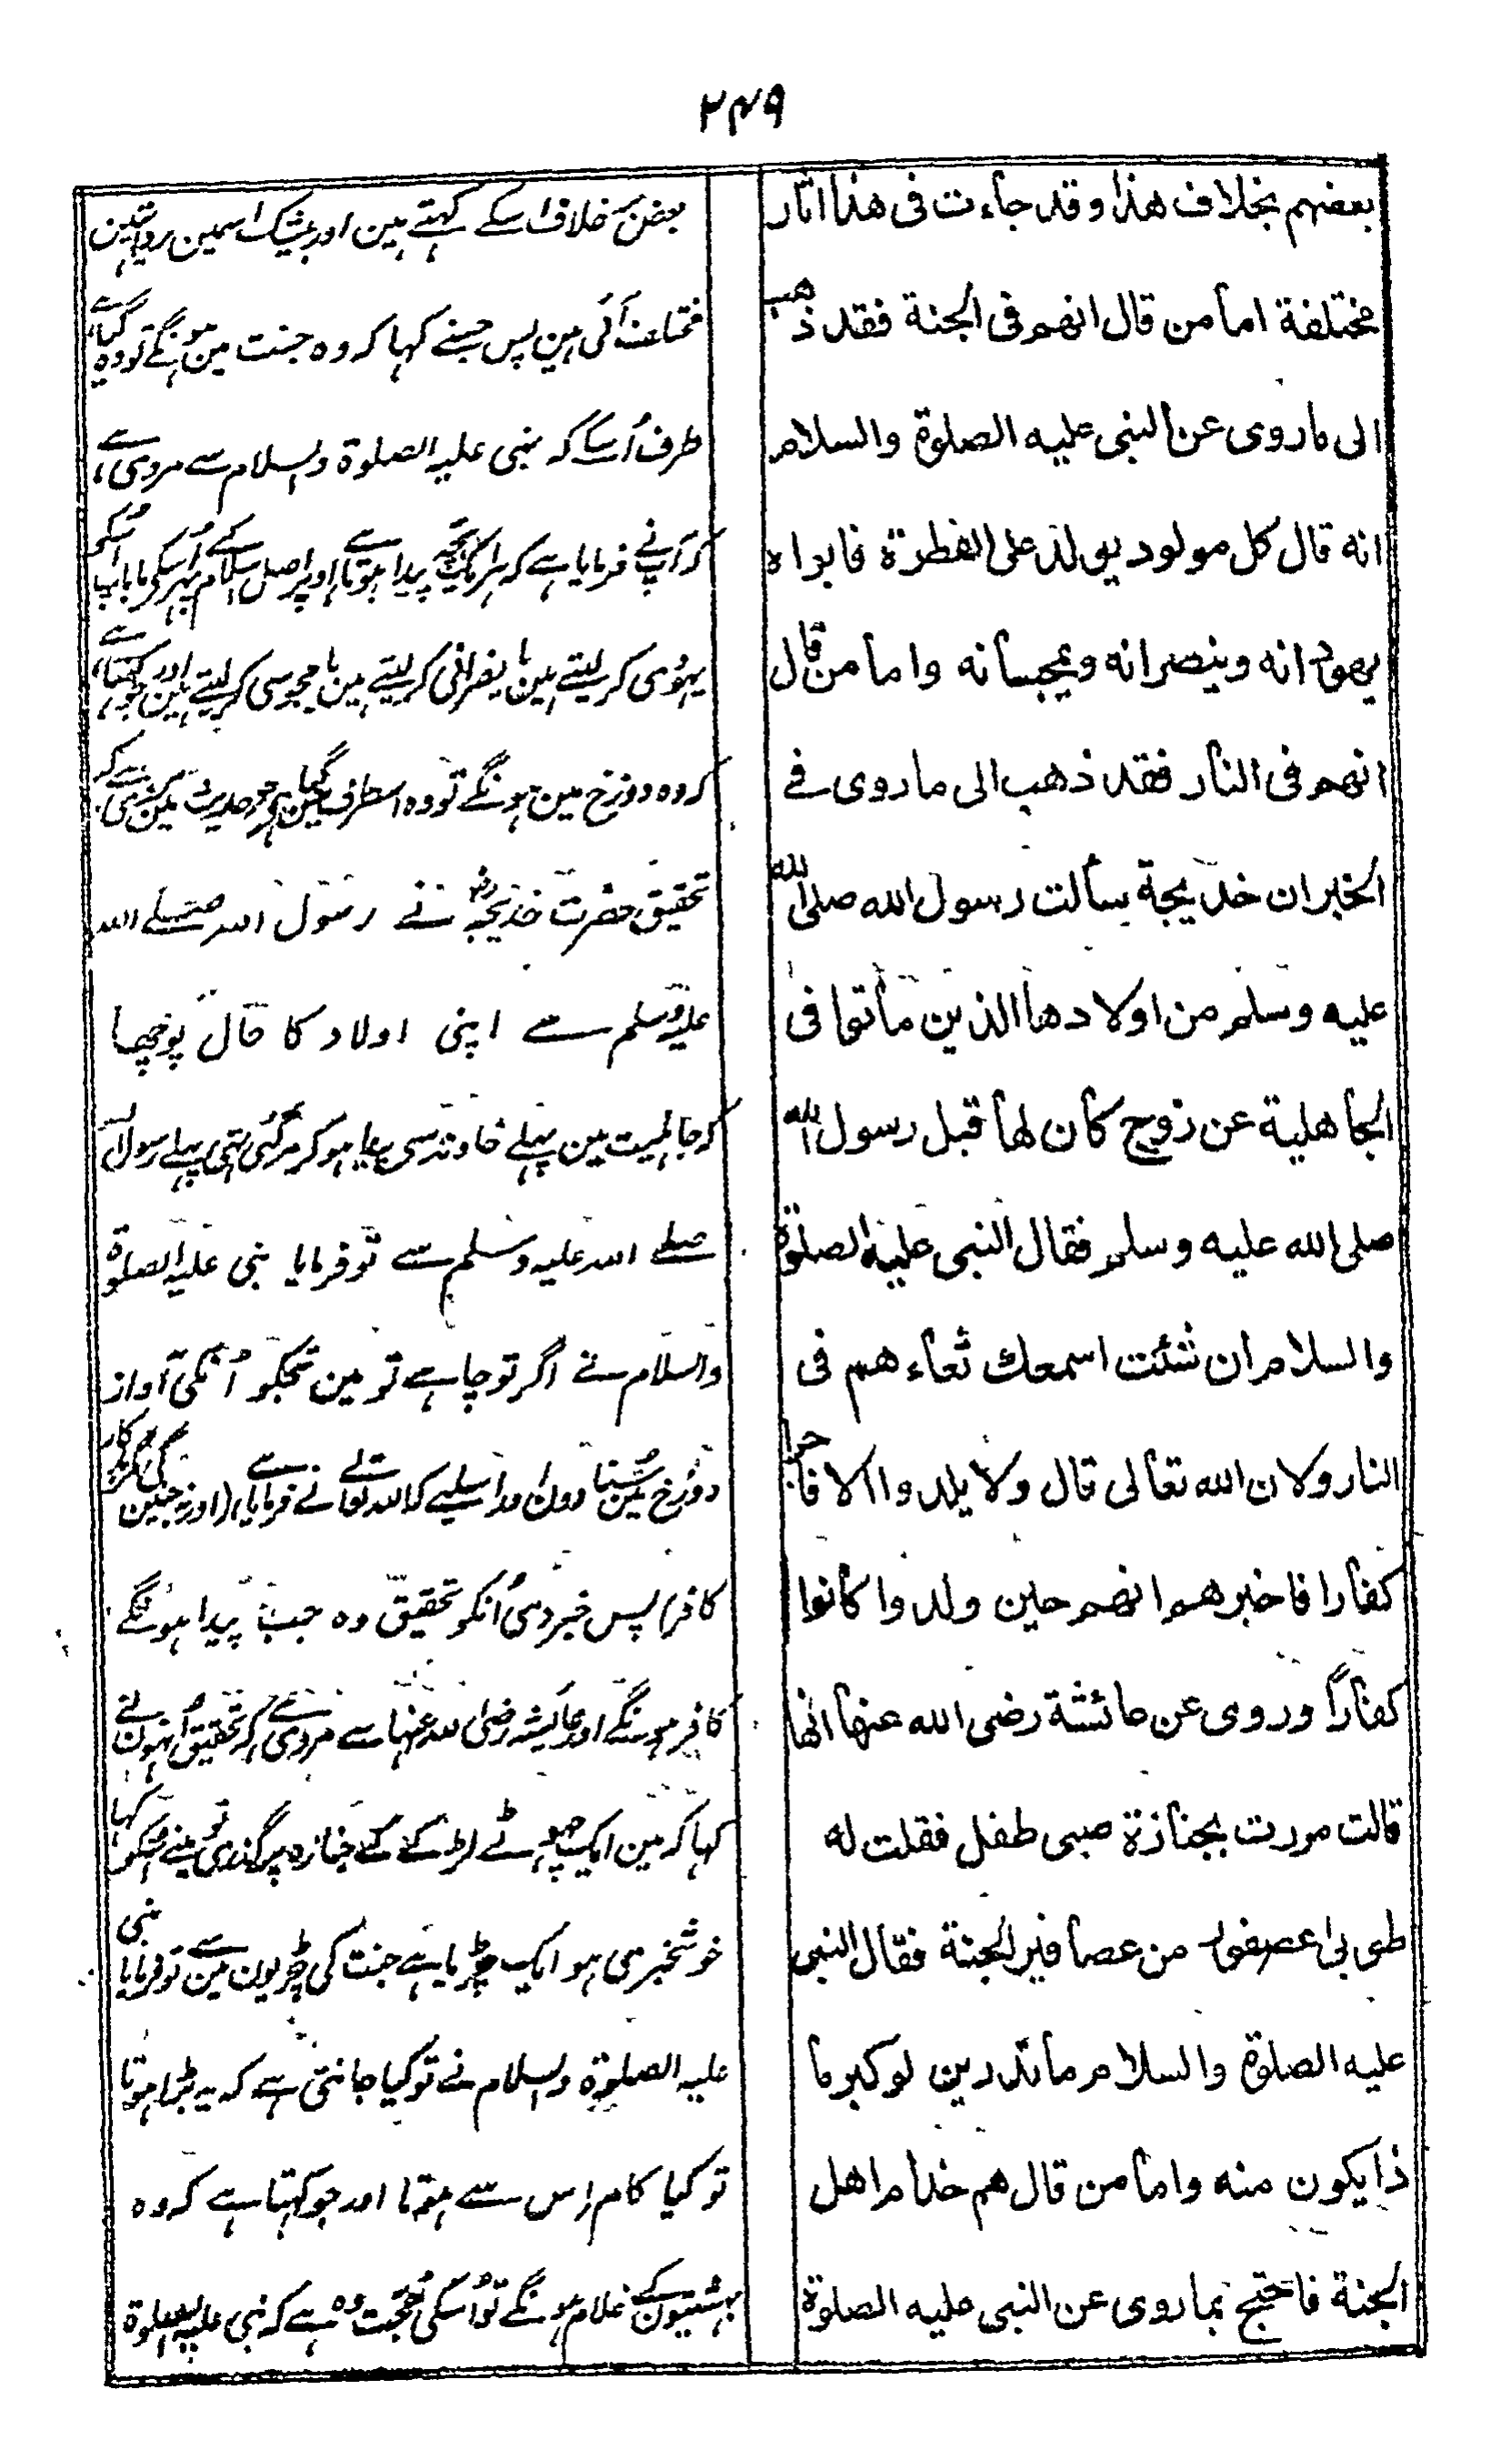 ۲۴۹
بعضهم بخلاف هذا وقد جاءت فى هذا اثار
مختلفة اما من قال انهم فى الجنة فقد ذهب
الى ما روى عن النبى عليه الصلوة والسلام
انه قال كل مولود يولد على الفطرة فابواه
يهودانه وينصرانه ويمجسانه واما من قال
انهم فى النار فقد ذهب الى ما روى فے
الخبر ان خديجة سألت رسول الله صلى الله
عليه وسلم من اولادها الذين ماتوا فى
الجاهلية عن زوج كان لها قبل رسول الله
صلى الله عليه وسلم فقال النبى عليه الصلوة
والسلام ان شئت اسمعك ثغاءهم فى
النار ولان الله تعالى قال ولا يلدوا الا فاجرا
كفارا فاخبرهم انهم حين ولدوا كانوا
كفاراً وروى عن عائشة رضى الله عنها انها
قالت مررت بجنازة صبى طفل فقلت له
طوبى عصفور من عصافير الجنة فقال النبى
عليه الصلوة والسلام ما تدرين لو كبر ما
ذا يكون منه واما من قال هم خدام اهل
الجنة فاحتج بما روى عن النبى عليه الصلوة
بعض خلاف اسکے کہتے ہین اور بیشک اسمین روایتین
مختلف آئی ہین پس جسنے کہا کہ وہ جنت مین ہونگے تو وہ گیا ہے
طرف اُسکے کہ نبی علیہ الصلوۃ والسلام سے مروی ہے
کہ آپنے فرمایا ہے کہ ہر ایک بچہ پیدا ہوتا ہے اوپر اصل اسلام کے پہر اُسکی ما باپ اُسکو
یہودی کر لیتے ہین یا نصرانی کر لیتے ہین یا مجوسی کر لیتے ہین اور جو کہتا ہے
کہ وہ دوزخ مین ہونگے تو وہ اسطرف گیا ہے جو حدیث مین مروی ہے کہ
تحقیق حضرت خدیجہؓ نے رسول اللہ صلے اللہ
علیہ وسلم سے اپنی اولاد کا حال پوچھا
کہ جاہلیت مین پہلے خاوند سی پیدا ہو کر مر گئی تہی پہلے رسول اللہ
صلے اللہ علیہ وسلم سے تو فرمایا نبی علیہ الصلوۃ
والسلام نے اگر تو چاہے تو مین تجکو اُنکی آواز
دوزخ مین سُنا دون اور اسلیے کہ اللہ تعالے نے فرمایا ہے (اور نہ جنین گی مگر بدکار
کافر) پس خبر دی اُنکو تحقیق وہ جب پیدا ہونگے
کافر ہونگے اور عایشہ رضی اللہ عنہا سے مروی ہے کہ تحقیق اُنہون نے
کہا کہ مین ایک چھوٹے لڑکے کے جنازہ پر گذری تو مینے اُسکو کہا
خوشخبری ہو ایک چڑیا ہے جنت کی چڑیون مین سے تو فرمایا نبی
علیہ الصلوۃ والسلام نے تو کیا جانتی ہے کہ یہ بڑا ہوتا
تو کیا کام اِس سے ہوتا اور جو کہتا ہے کہ وہ
بہشتیون کے غلام ہونگے تو اُسکی حُجّت وہ ہے کہ نبی علیہ الصلوۃ